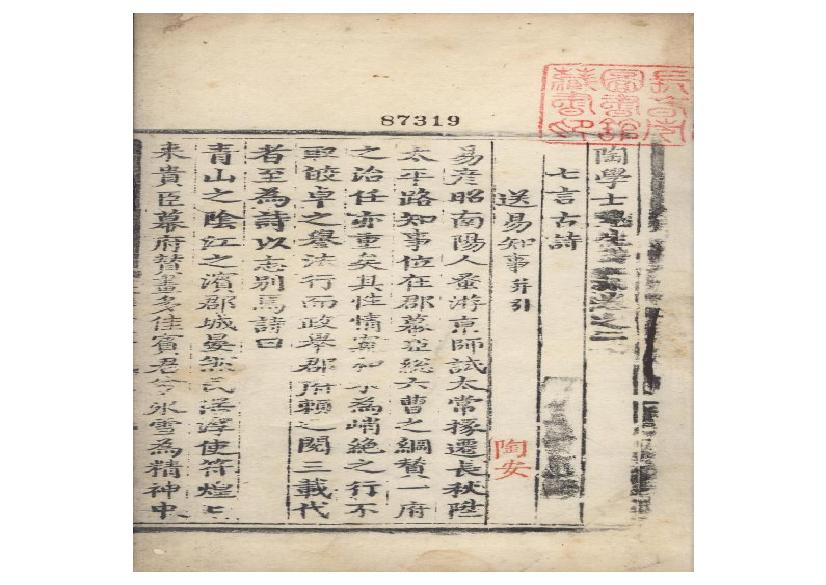 87319
陶學士先生文集卷之二
七言古詩
送易知事并引
陶安
易彦昭南陽人蚤游京師試太常掾遷長秋陞
太平路知事位在郡幕亞總六曹之綱賛一府
之治任亦重矣其性情 和不為峭絶之行不
取皎卓之譽法行而政舉郡府賴之閱三載代
者至為詩以志别焉詩曰
青山之陰江之濱郡城晏然民 淳使 煌煌
来貴臣幕府賛畫多佳賓君兮氷雪為精神中